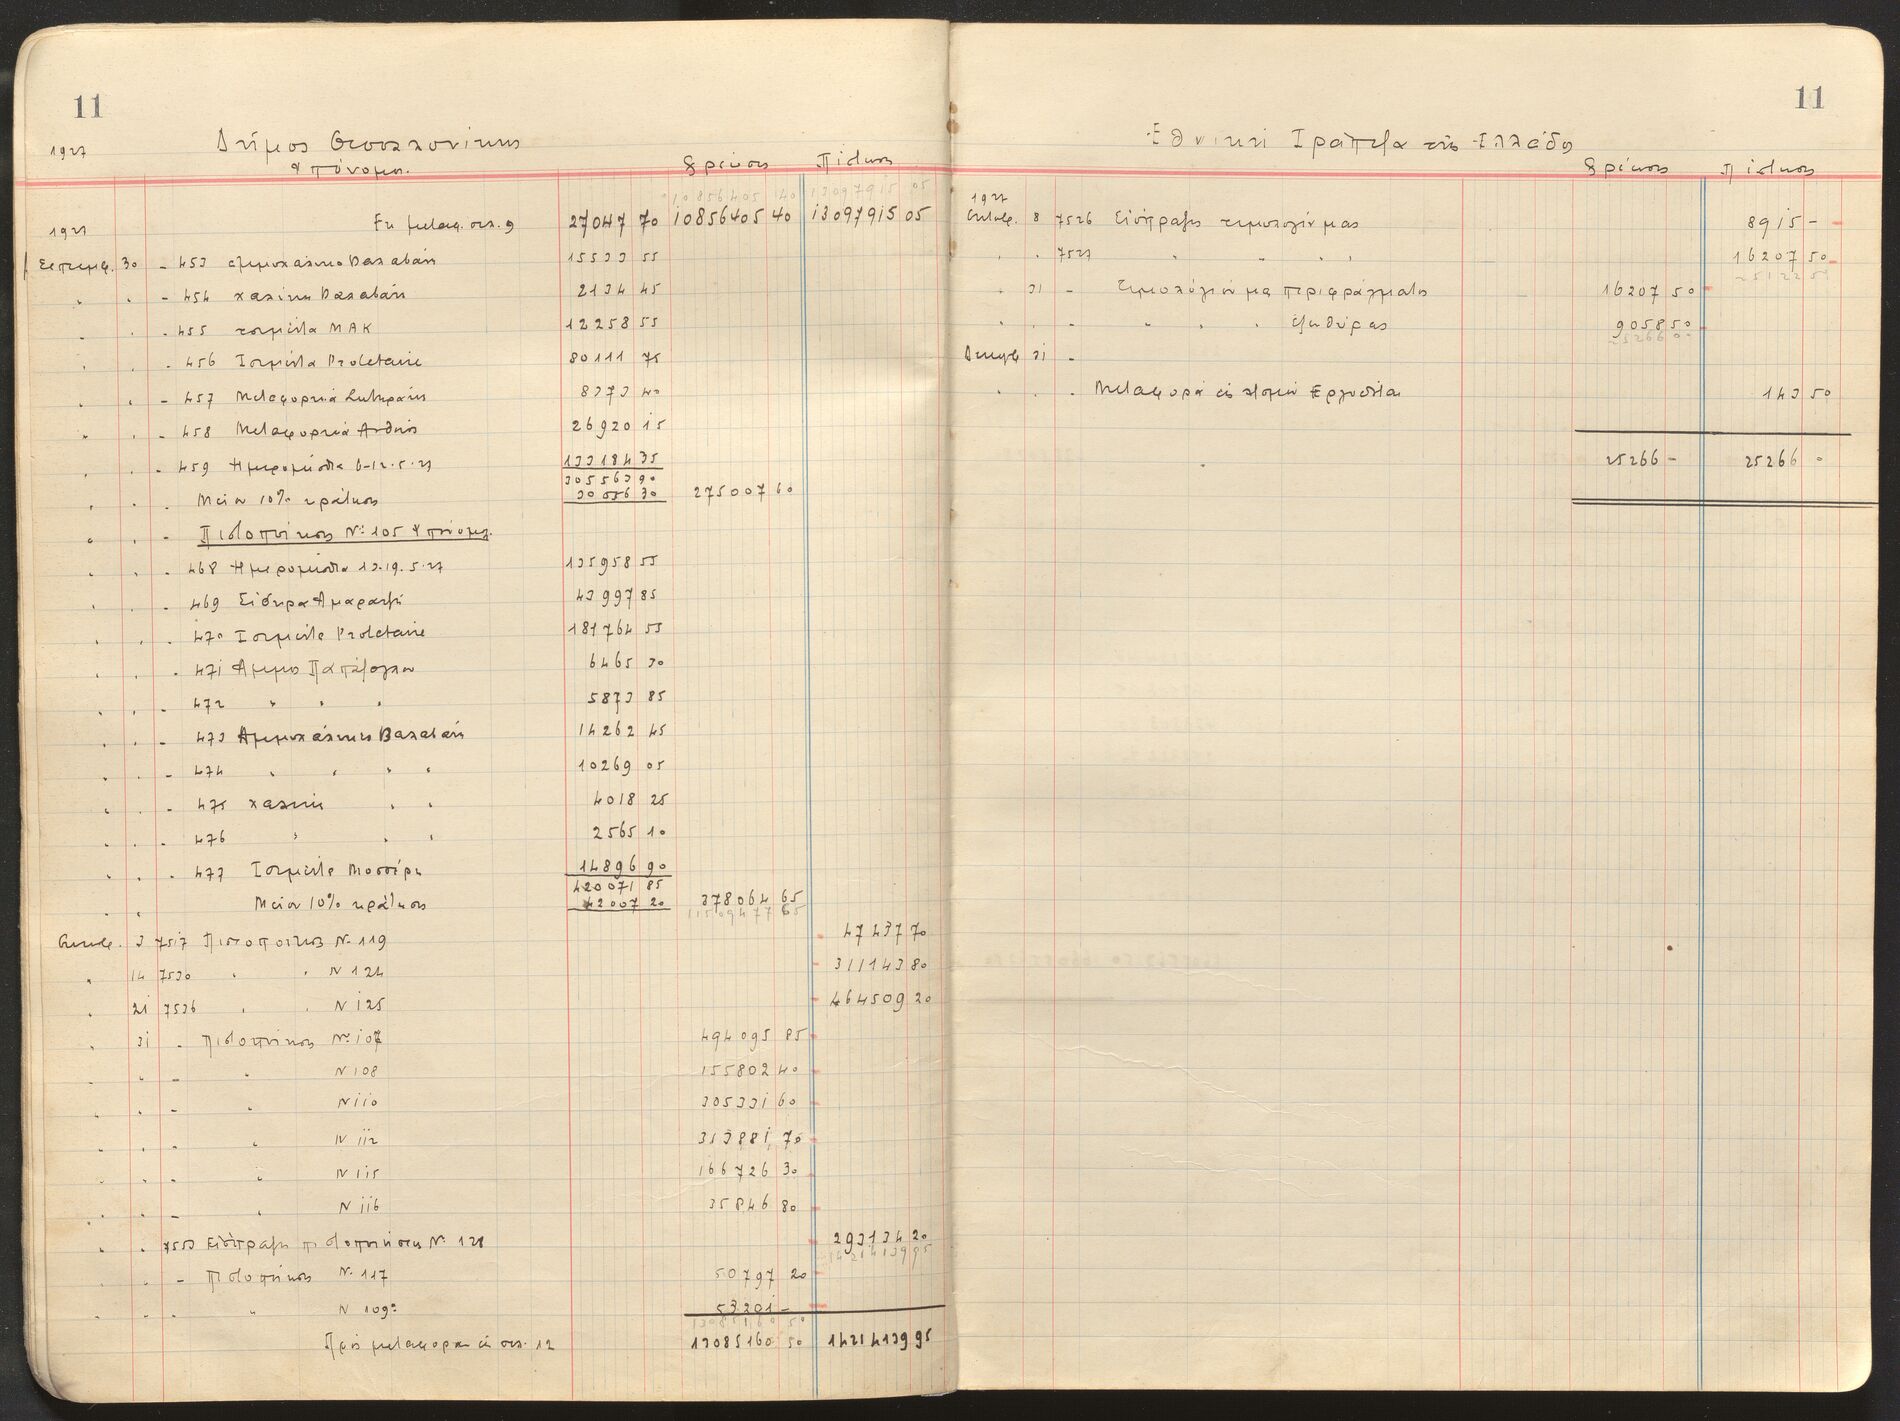 11
1927 Δήμος Θεσσαλονίκης
Υπόνομοι. Χρέωσις Πίστωσις
10856405 40 13097915 05
1927 Εκ μεταφ. σελ. 9 27047 70 10856405 40 13097915 05
Σεπτεμβ. 30 - 453 Αμμοχάλικο Βαλαβάνη 15533 55
" " - 454 χαλίκι Βαλαβάνη 2134 45
" " - 455 τσιμέντα ΜΑΚ 12258 55
" " - 456 Τσιμέντα Proletaire 80111 75
" " - 457 Μεταφορικά 8373 40
" " - 458 Μεταφορικά 26920 15
" " - 459 Ημερομίσθια 6-12.5.27 133184 35
305563 90
" " - Μείον 10% κράτησις 30556 30 275007 60
" " - Πιστοποίησις Νο 105 Υπονόμ.
" " - 468 Ημερομίσθια 13.19.5.27 135958 55
" " - 469 Σίδηρα Αμαραντζή 43997 85
" " - 470 Τσιμέντα Proletaire 181764 55
" " - 471 Άμμος Παπάζογλου 6465 30
" " - 472 " " " 5873 85
" " - 473 Αμμοχάλικο Βαλαβάνη 14262 45
" " - 474 " " " " 10269 05
" " - 475 χαλίκι " " 4018 25
" " - 476 " " " 2565 10
" " - 477 Τσιμέντα Μοσσέρη 14896 90
420071 85
" " Μείον 10% κράτησις 42007 20 378064 65
11509477 65
Οκτωβ. 3 7517 Πιστοποίησις Ν. 119 47437 70
" 14 7530 " " Ν 124 311143 80
" 21 7536 " " Ν 125 464509 20
" 31 - Πιστοποίησις Νο 107 494095 85
" " - " Ν 108 155802 40
" " - " Ν 110 305331 60
" " - " Ν 112 313881 70
" " - " Ν 115 166726 30
" " - " Ν 116 35846 80
" " 7553 Είσπραξις πιστοποιήσεως Ν. 128 293134 20
14214139 95
" " - Πιστοποίησις Ν. 117 50797 20
" " - " Ν 109α 53201 -
13085160 50
Προς μεταφοράν εις σελ. 12 13085160 50 14214139 95
11
Εθνική Τράπεζα της Ελλάδος
Χρέωσις Πίστωσις
1927
Οκτωβ. 8 7526 Είσπραξις τιμολογίου μας 8915 -
" " 7527 " " " " 16207 50
25122 50
" 31 - Τιμολόγιόν μας περιφράγματος 16207 50
" " - " " " εξωθύρας 9058 50
25266 00
Δεκεμβ 31 -
" " - Μεταφορά εις 143 50
25266 - 25266 -